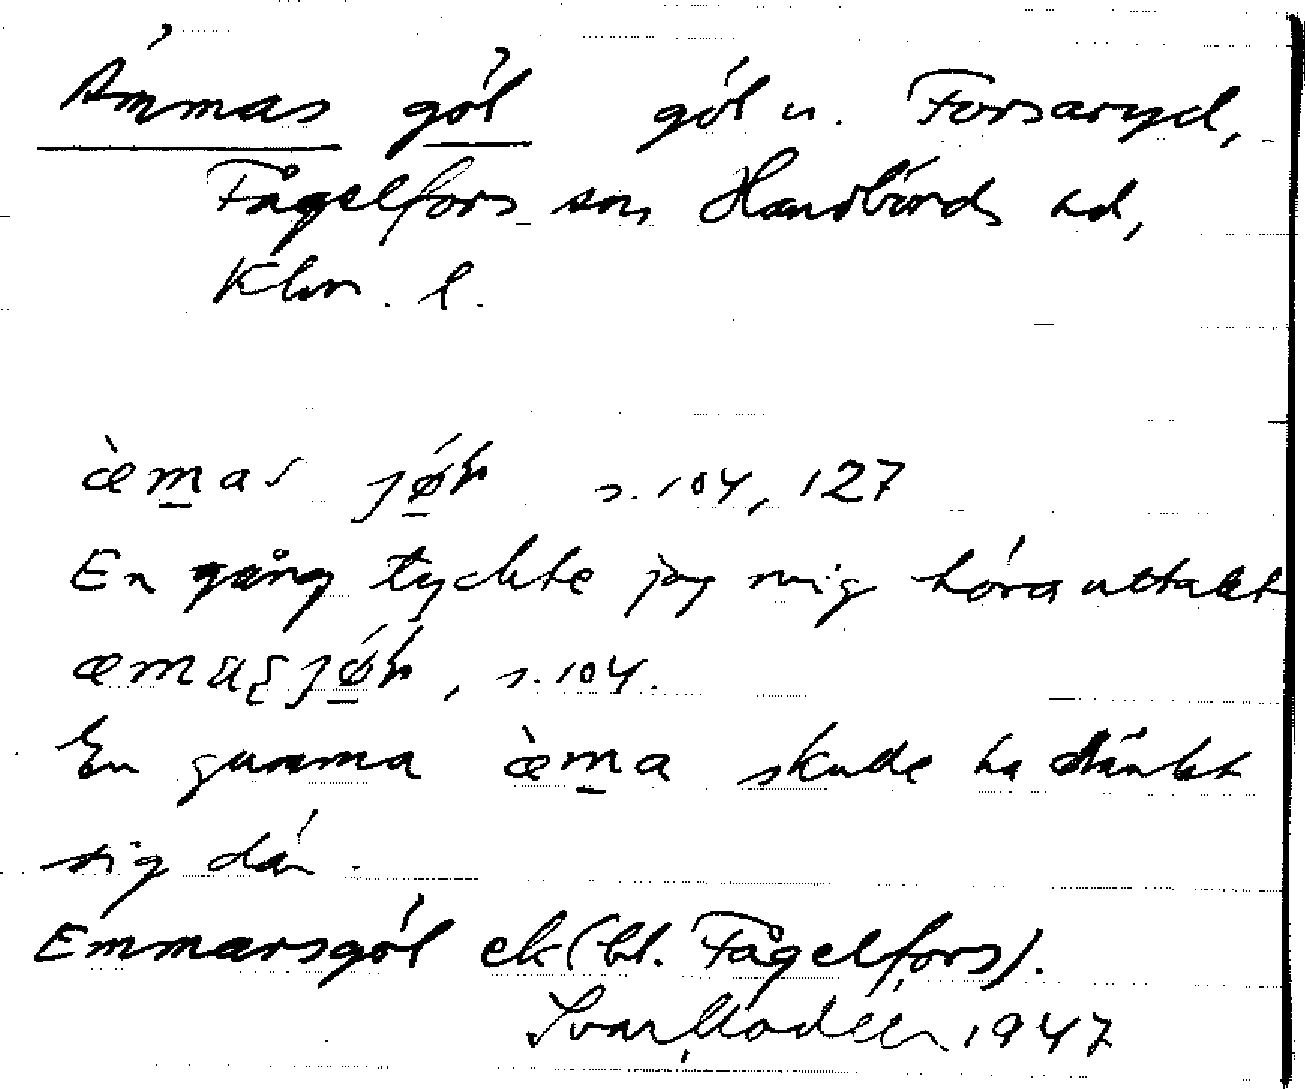 Ämmas göl göl u. Forsaryd,
Fågelfors sn, Handbörds hd,
Klm. l.
æ̀mas jø̄l s. 104, 127
En gång tyckte jag mig höra uttalet
æmaʂjø̄l, s. 104.
En gumma æ̀ma skulle ha dränkt
sig där.
Emmarsgöl ek (bl. Fågelfors).
Ivar Modéer 1947